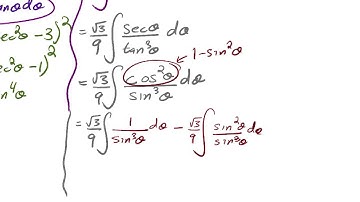 anθdθ
ec²θ - 3)²
ec²θ - 1)²
n⁴θ
= √3/9 ∫ secθ/tan³θ dθ
1 - sin²θ
= √3/9 ∫ cos²θ/sin³θ dθ
= √3/9 ∫ 1/sin³θ dθ - √3/9 ∫ sin²θ/sin³θ dθ